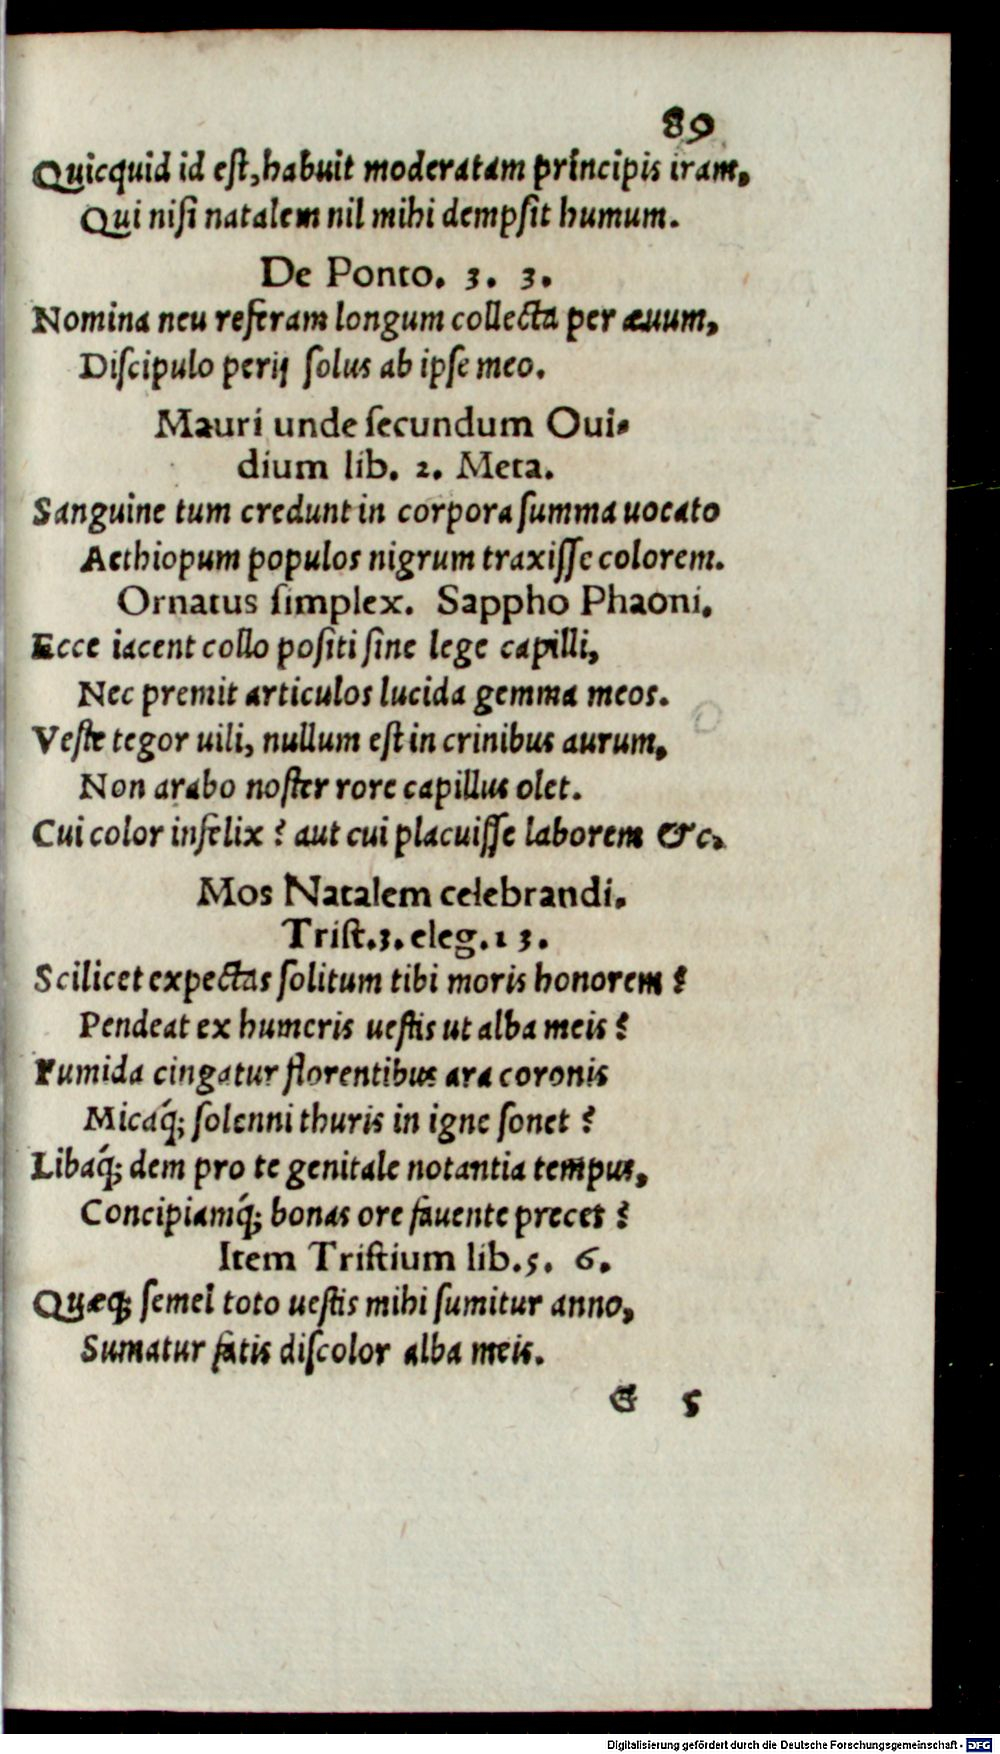 89
Quicquid id eſt, habuit moderatam principis iram,
Qui niſi natalem nil mihi dempſit humum.
De Ponto. 3. 3.
Nomina neu referam longum collecta per æuum,
Diſcipulo perij ſolus ab ipſe meo.
Mauri unde ſecundum Oui-
dium lib. 2. Meta.
Sanguine tum credunt in corpora ſumma uocato
Aethiopum populos nigrum traxiſſe colorem.
Ornatus ſimplex. Sappho Phaoni.
Ecce iacent collo poſiti ſine lege capilli,
Nec premit articulos lucida gemma meos.
Veſte tegor uili, nullum eſt in crinibus aurum,
Non arabo noſter rore capillus olet.
Cui color infelix? aut cui placuiſſe laborem &c.
Mos Natalem celebrandi.
Triſt.3. eleg.13.
Scilicet expectas ſolitum tibi moris honorem?
Pendeat ex humeris ueſtis ut alba meis?
Fumida cingatur florentibus ara coronis
Micaq́; ſolenni thuris in igne ſonet?
Libaq́; dem pro te genitale notantia tempus,
Concipiamq́; bonas ore fauente preces?
Item Triſtium lib.5. 6.
Quæq; ſemel toto ueſtis mihi ſumitur anno,
Sumatur fatis diſcolor alba meis.
G 5
Digitalisierung gefördert durch die Deutsche Forschungsgemeinschaft - DFG